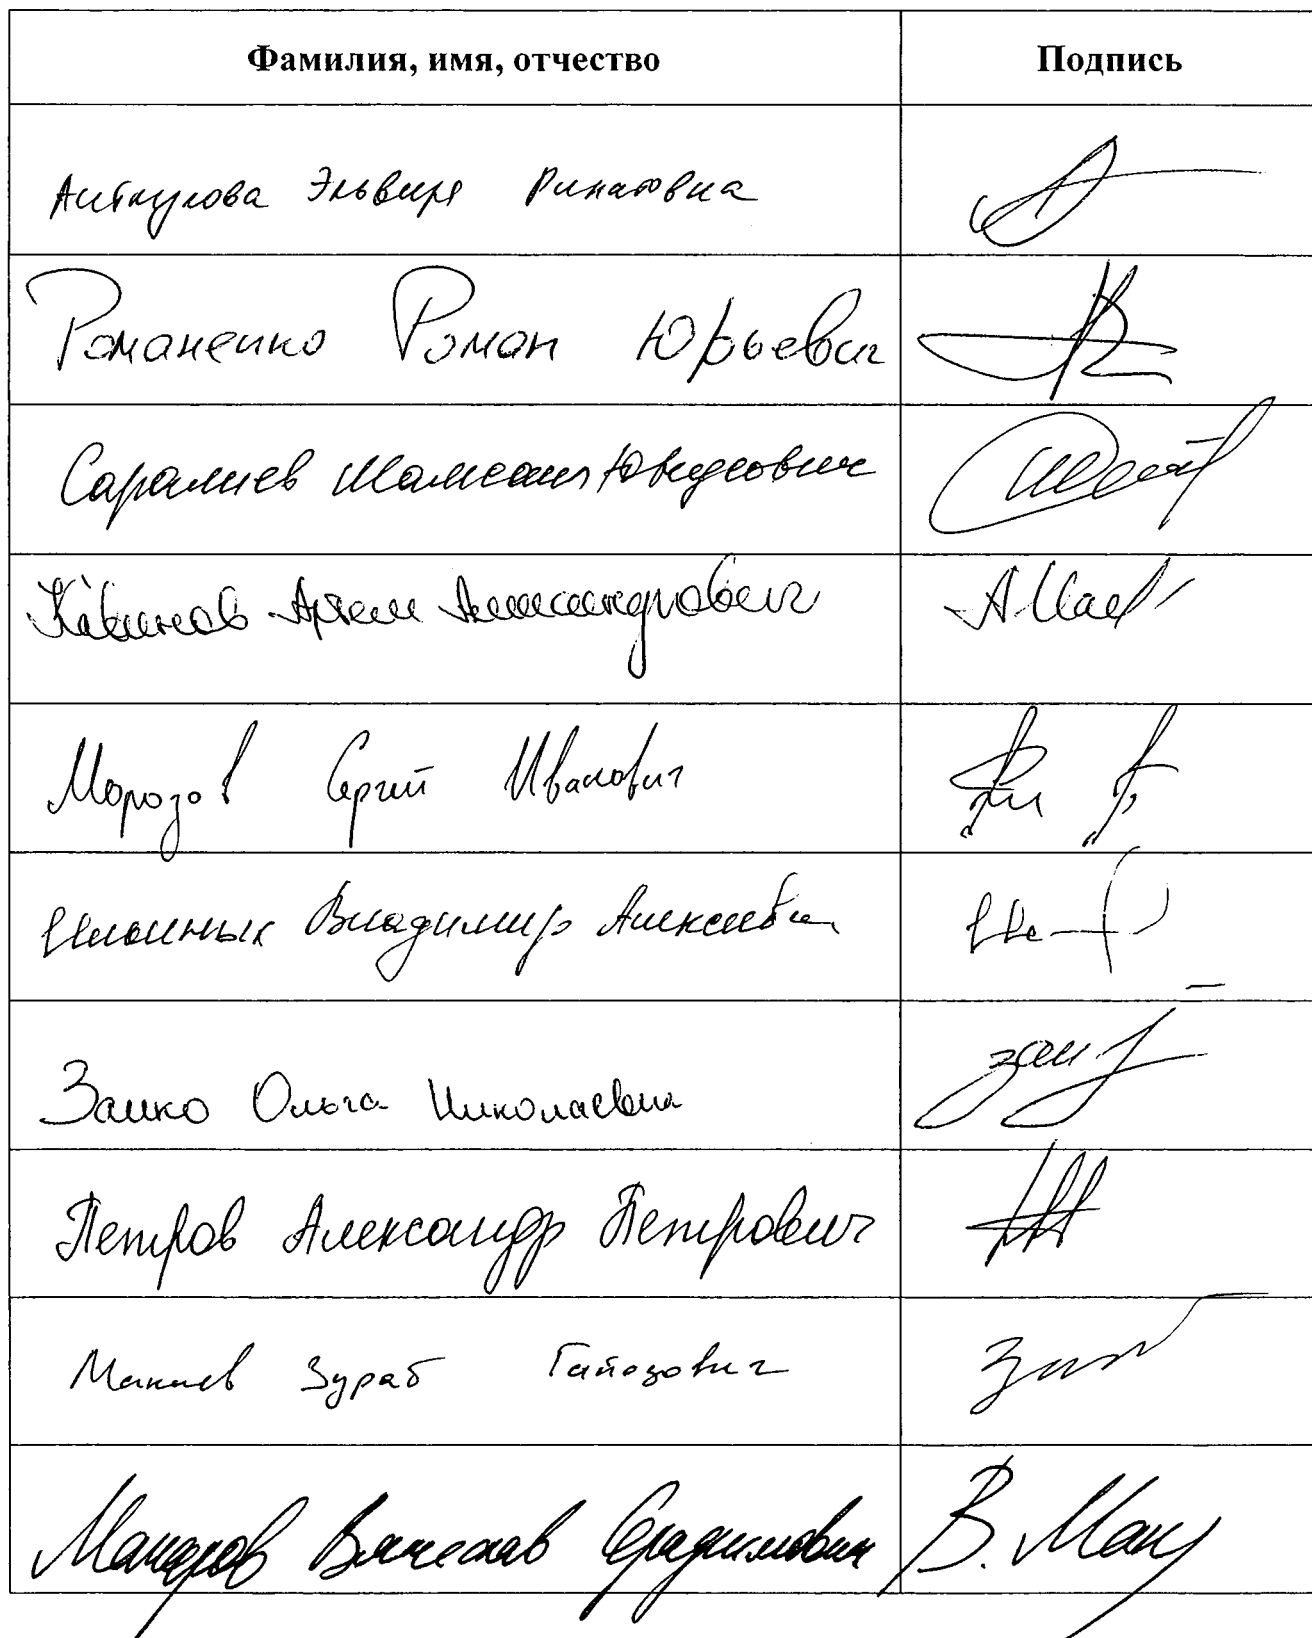 Фамилия, имя, отчество Подпись
Аиткулова Эльвира Ринатовна
Романенко Роман Юрьевич
Саралиев Шамсаил Юнусович
Кавинов Артём Александрович
Морозов Сергей Иванович
Ильиных Владимир Алексеевич
Заико Ольга Николаевна
Петров Александр Петрович
Макиев Зураб Гайозович
Вячеслав
В. Мак